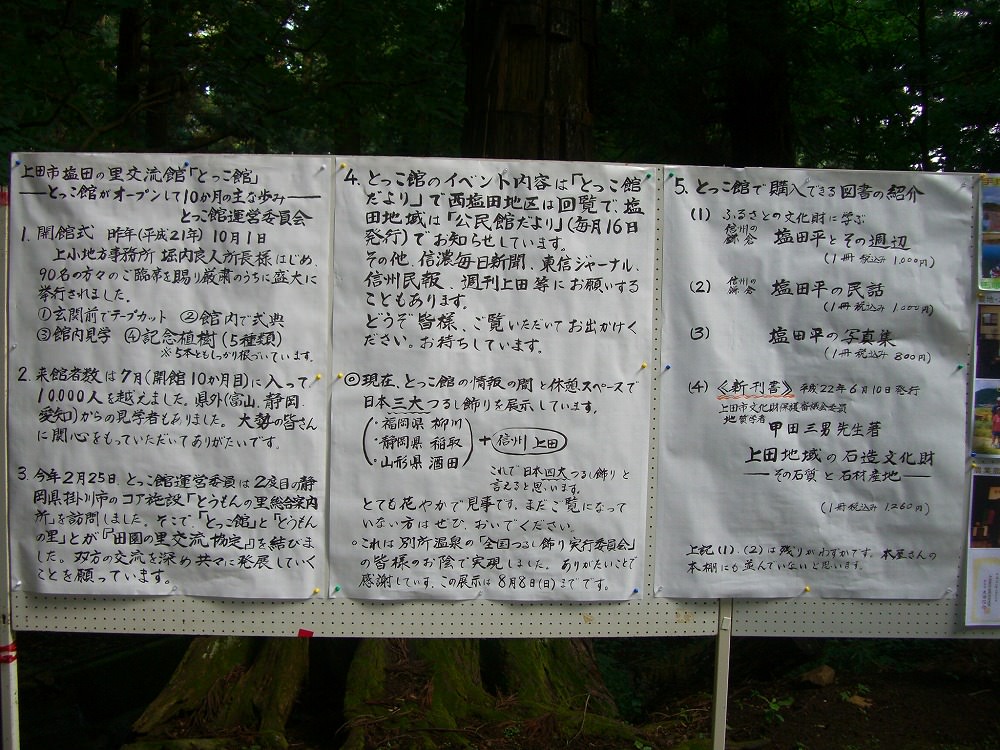 上田市塩田の里交流館「とっこ館」
―とっこ館がオープンして10か月の主な歩み―
とっこ館運営委員会
1. 開館式 昨年(平成21年)10月1日
上小地方事務所 堀内良人所長様はじめ、
90名の方々のご臨席を賜り厳粛のうちに盛大に
挙行されました。
①玄関前でテープカット ②館内で式典
③館内見学 ④記念植樹(5種類)
※5本ともしっかり根づいています。
2. 来館者数は7月(開館10か月目)に入って
10000人を越えました。県外(富山、静岡、
愛知)からの見学者もありました。大勢の皆さん
に関心をもっていただいてありがたいです。
3. 今年2月25日、とっこ館運営委員は2度目の静
岡県掛川市のコア施設「とうもんの里総合案内
所」を訪問しました。そこで、「とっこ館」と「とうもん
の里」とが『「田園の里交流」協定』を結びま
した。双方の交流を深め共々に発展していく
ことを願っています。
4. とっこ館のイベント内容は「とっこ館
だより」で西塩田地区は回覧で、塩
田地域は「公民館だより」(毎月16日
発行)でお知らせしています。
その他、信濃毎日新聞、東信ジャーナル、
信州民報、週刊上田等にお願いする
こともあります。
どうぞ皆様、ご覧いただいてお出かけく
ださい。お待ちしています。
◎現在、とっこ館の情報の間と休憩スペースで
日本三大つるし飾りを展示しています。
・福岡県 柳川
・静岡県 稲取 + 信州 上田
・山形県 酒田
これで日本四大つるし飾りと
言えると思います。
とても花やかで見事です。まだご覧になって
いない方はぜひ、おいでください。
○これは別所温泉の「全国つるし飾り実行委員会」
の皆様のお陰で実現しました。ありがたいことで
感謝しています。この展示は8月8日(日)までです。
5. とっこ館で購入できる図書の紹介
(1) ふるさとの文化財に学ぶ
信州の鎌倉 塩田平とその周辺
(1冊 税込み 1,000円)
(2) 信州の鎌倉 塩田平の民話
(1冊 税込み 1,000円)
(3) 塩田平の写真集
(1冊 税込み 800円)
(4) 《新刊書》 平成22年6月10日発行
上田市文化財保護審議会委員
地質学者 甲田三男先生著
上田地域の石造文化財
―その石質と石材産地―
(1冊 税込み 1,260円)
上記(1)、(2)は残りがわずかです。本屋さんの
本棚にも並んでいないと思います。